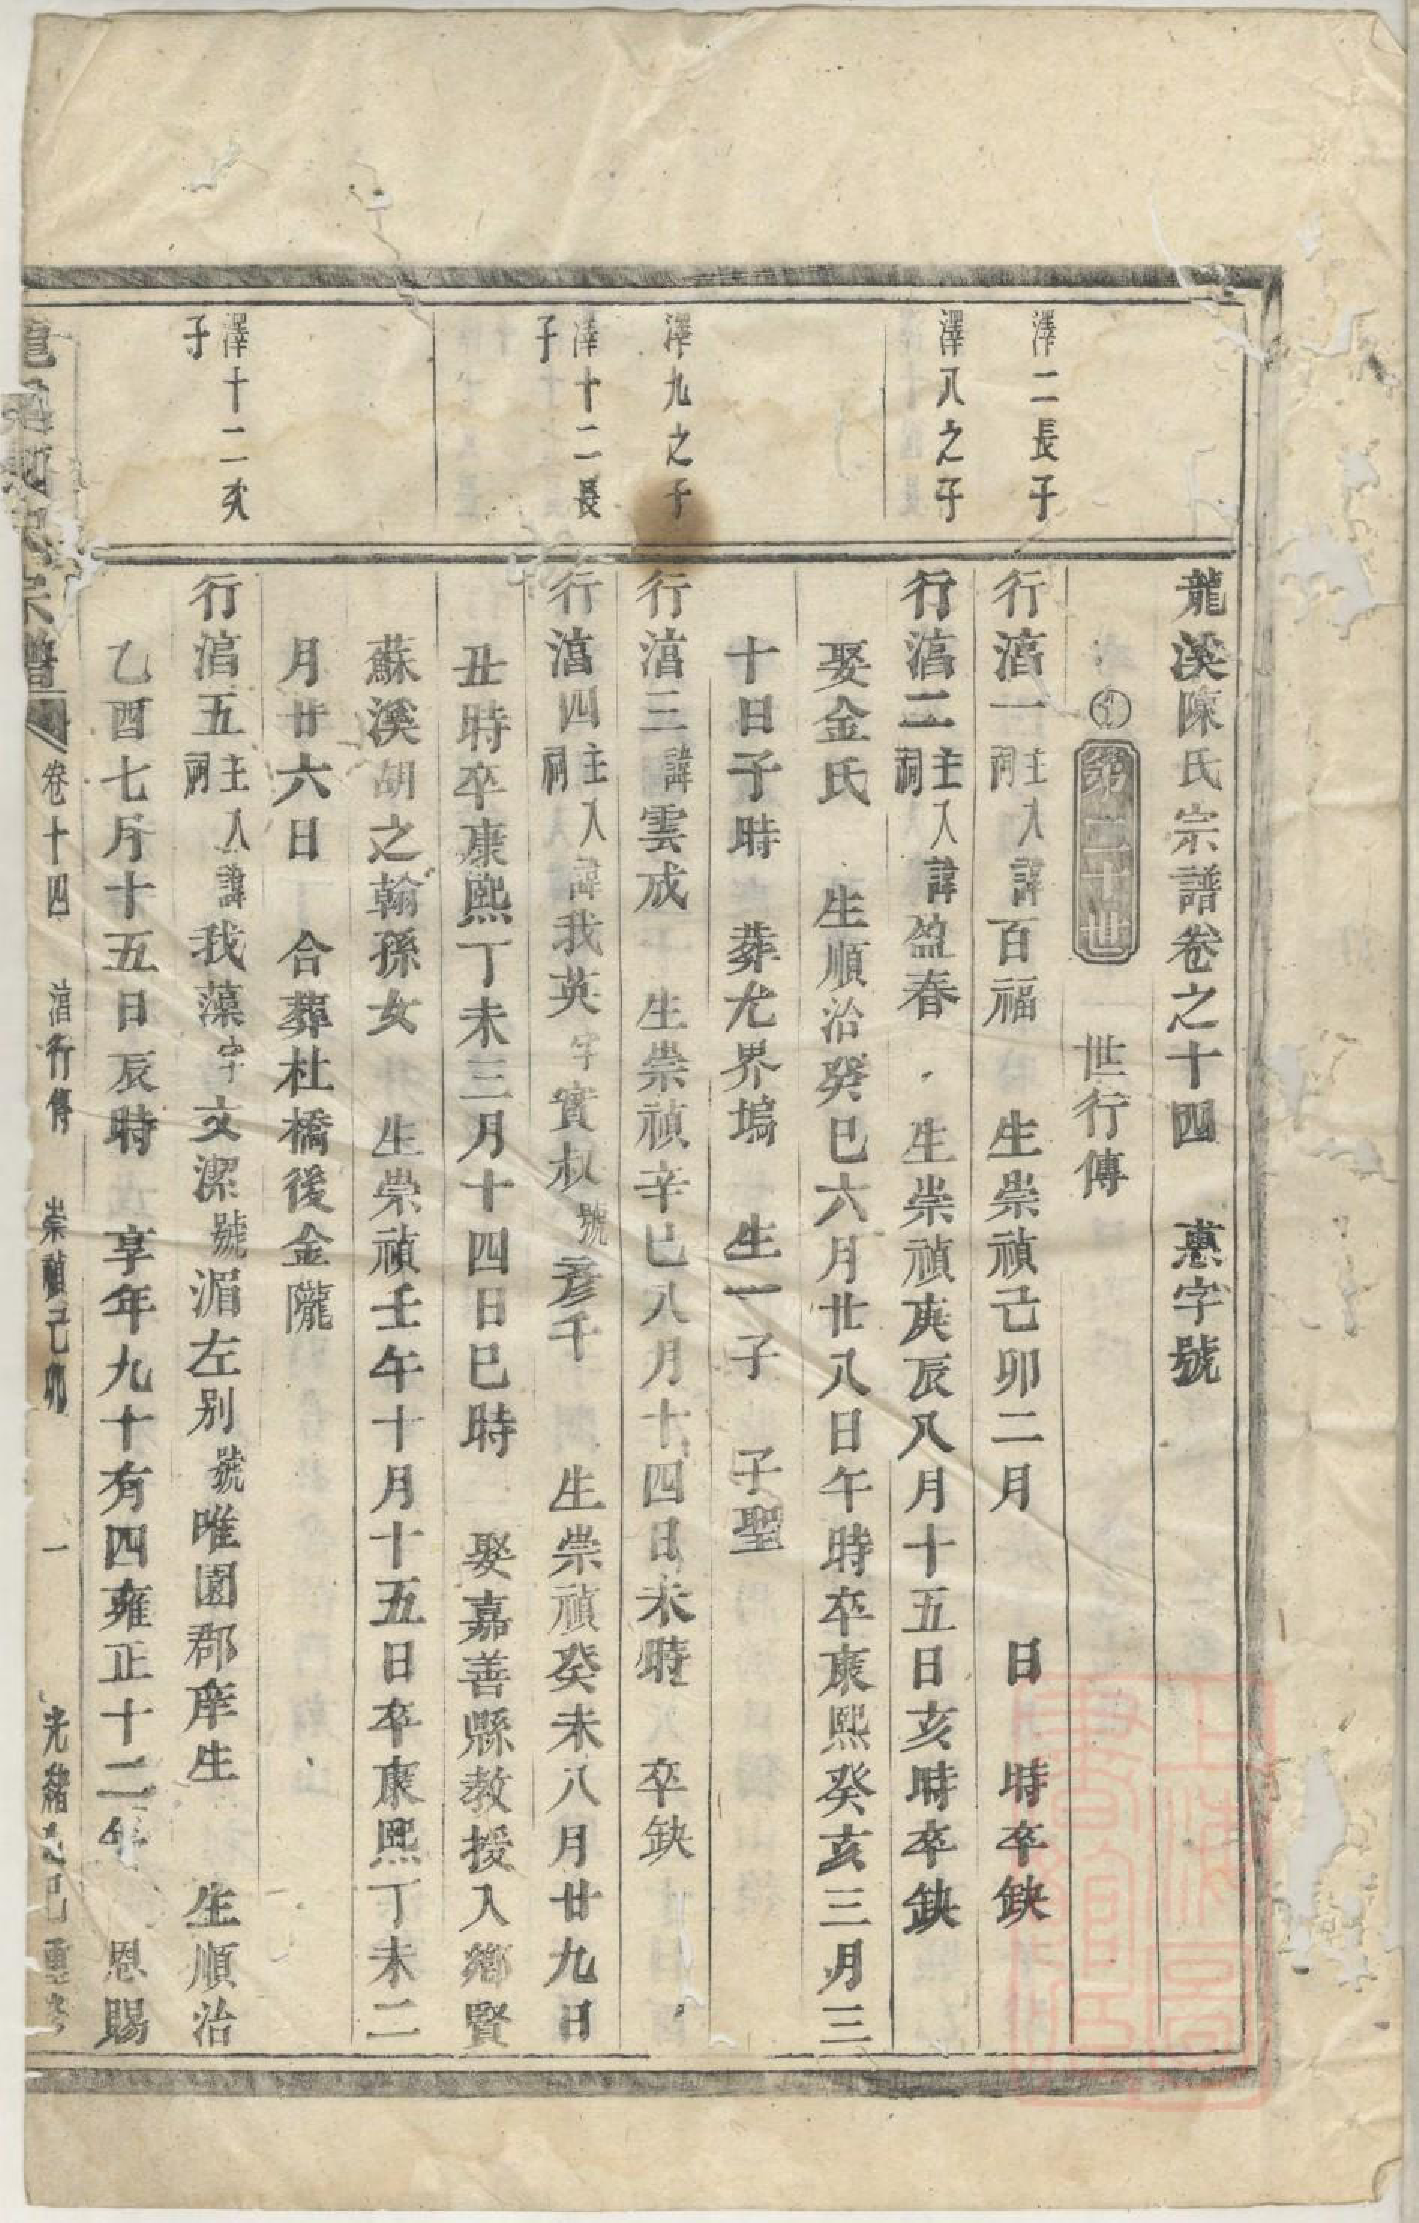 龍溪陳氏宗譜卷之十四 惪字號
第二十世 世行傳
澤二長子
行湻一主入祠諱百福 生崇禎己卯二月 日 時卒缺
澤八之子
行湻二主入祠諱盈春 生崇禎庚辰八月十五日亥時卒缺
娶金氏 生順治癸巳六月廿八日午時卒康熙癸亥三月三
十日子時 葬尤界塢 生一子 子聖
澤九之子
行湻三諱雲成 生崇禎辛巳八月十四日未時 卒缺
澤十二長子
行湻四主入祠諱我英字實叔號彥千 生崇禎癸未八月廿九日
丑時卒康熙丁未三月十四日巳時 娶嘉善縣教授入鄉賢
蘇溪胡之翰孫女 生崇禎壬午十月十五日卒康熙丁未二
月廿六日 合葬杜橋後金隴
澤十二次子
行湻五主入祠諱我藻字文潔號湄左别號唯園郡庠生 生順治
乙酉七月十五日辰時 享年九十有四雍正十二年 恩賜
龍溪陳氏宗譜 卷十四 湻行傳 崇禎己卯 一 光緒乙巳重修